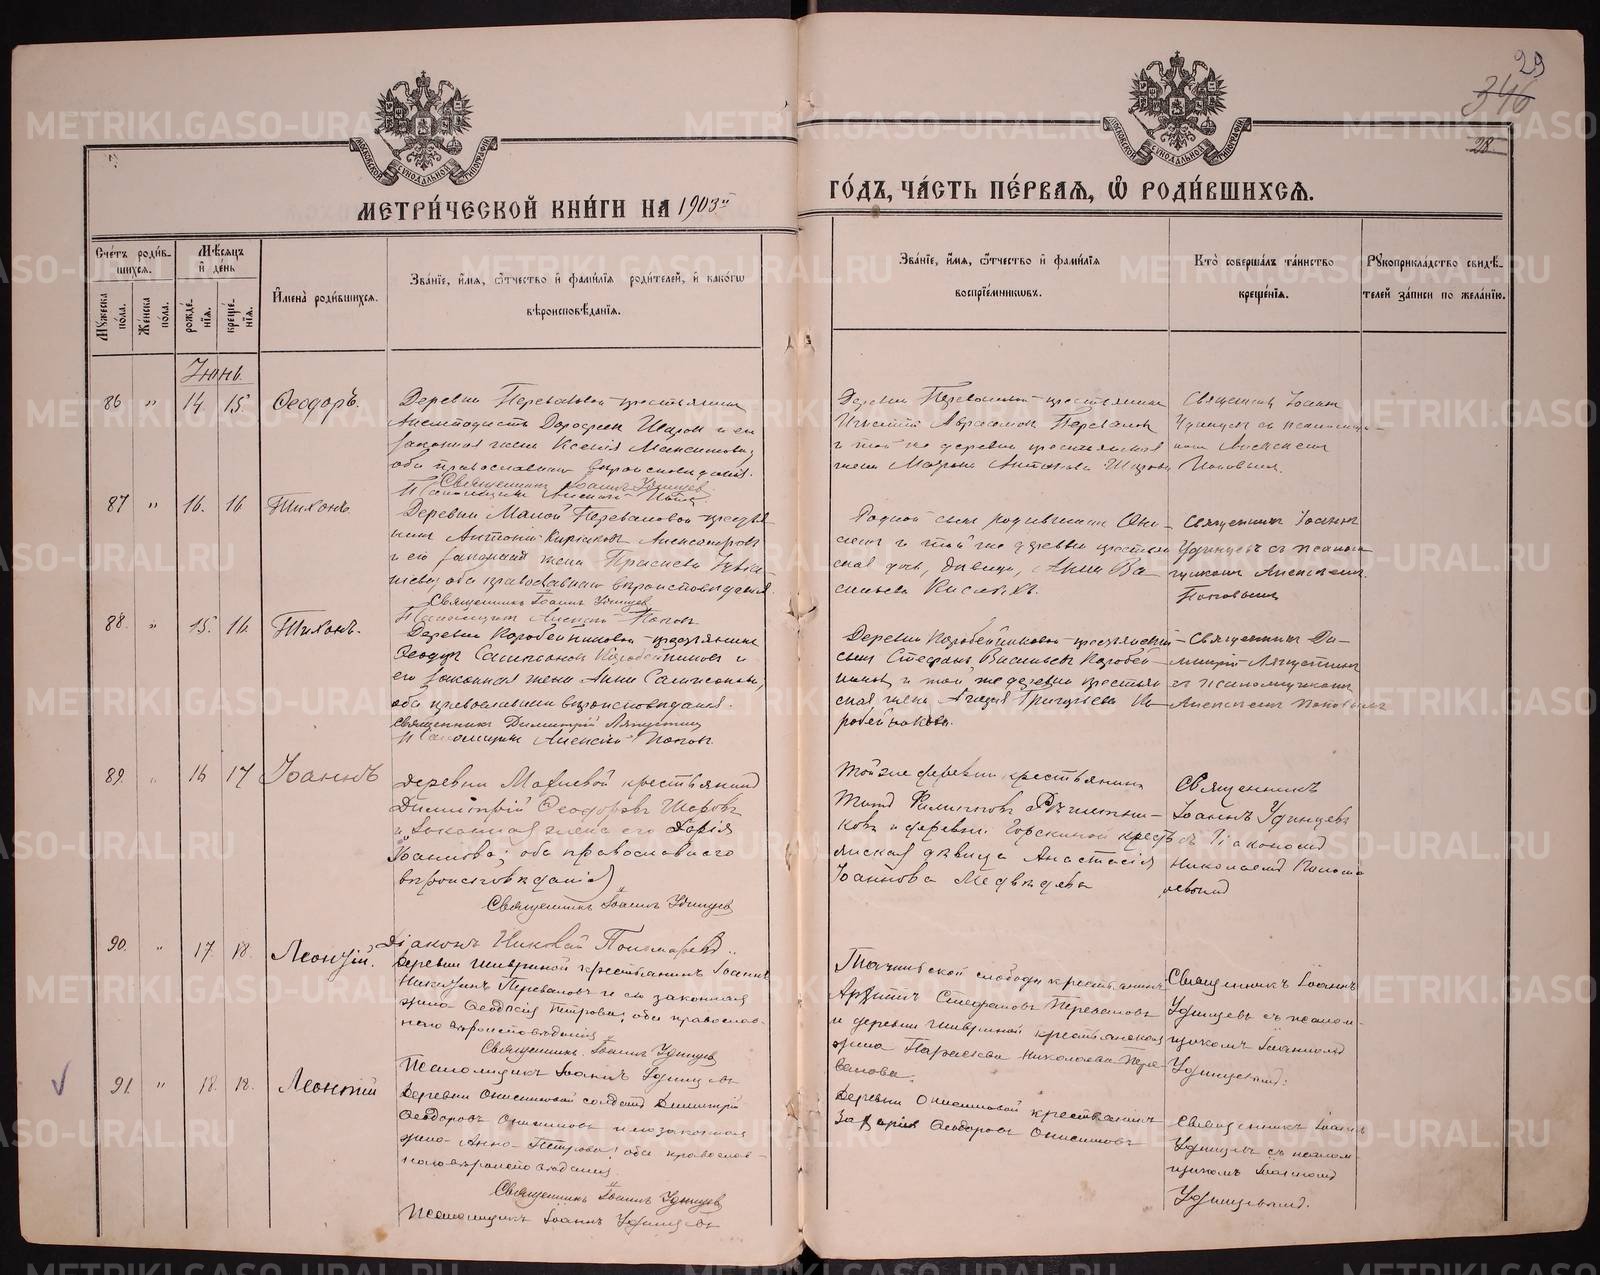 29
346
28
МЕТРИ́ЧЕСКОЙ КНИ́ГИ НА 1903й
ГО́ДЪ, ЧА́СТЬ ПЕ́РВАѦ, Ѽ РОДИ́ВШИХСѦ.
Сче́тъ роди́в-
шихсѧ.
Мѹ́жеска по́ла.
Же́нска по́ла.
Мѣ́сѧцъ и҆ де́нь
рожде́-
нїѧ.
креще́-
нїѧ.
И҆мена̀ роди́вшихсѧ.
Зва́нїе, и҆́мѧ, ѻ҆́тчество и҆ фами́лїѧ роди́телей, и҆ како́гѡ
вѣроисповѣ́данїѧ.
Зва́нїе, и҆́мѧ, ѻ҆́тчество и҆ фами́лїѧ
воспрїе́мникѡвъ.
Кто̀ соверша́лъ та́инство
креще́нїѧ.
Рѹкоприкла́дство свидѣ́-
телей за́писи по жела́нїю.
Іюнь.
86 " 14. 15 Ѳеодоръ.
Деревни Переваловой крестьянинъ
Дороѳеев Шаров и его
законная жена Ксенія Максимова,
оба православнаго вѣроисповѣданія.
Священникъ Іоаннъ Удинцев
Псаломщикъ Алексѣй Попов
Деревни Переваловой крестьянинъ
Игнатій Авраамов Перевалов
и той же деревни крестьянская
жена Матрона Антонова Шарова
Священникъ Іоанн
Удинцев съ псаломщи-
ком Алексѣем
Поповым.
87 " 16. 16 Тихонъ
Деревни Малой Переваловой крестья-
нинъ Антоній Александров
и его законная жена
оба православнаго вѣроисповѣданія.
Священникъ Іоаннъ Удинцев
Псаломщикъ Алексѣй Попов
Родной сын родившаго
и той же деревни крестьян
ская дочь, дѣвица, Анна Ва-
сильева
Священникъ Іоаннъ
Удинцевъ съ псалом
щиком Алексѣем
Поповым
88. " 15. 16. Тихонъ.
Деревни Коробейниковой крестьянинъ
Ѳеодоръ Сампсонов Коробейников и
его законная жена Анна
оба православнаго вѣроисповѣданія.
Священник Димитрій Ляпустин
Псаломщикъ Алексѣй Попов.
Деревни Коробейниковой крестьянскій
сынъ Стефанъ Васильевъ Коробей-
ников и той же деревни крестьян
ская жена Григорьева Ко-
робейникова.
Священникъ Ди-
митрій Ляпустинъ
съ псаломщиком
Алексѣем Поповымъ
89. " 16 17 Іоаннъ
Деревни крестьянинъ
Димитрій Ѳеодоровъ Шаровъ
и законная жена его Дарія
Іоаннова; оба православнаго
вѣроисповѣданія
Священникъ Іоаннъ Удинцев
Діаконъ Николай Пономаревъ
Той же деревни крестьянинъ
Титъ Филиппов
ковъ и деревни Горскиной кресть
янская дѣвица Анастасія
Іоаннова Медвѣдева
Священникъ
Іоаннъ Удинцевъ
съ Діакономъ
Николаемъ Понома
ревымъ
90. " 17. 18. Леонтій.
Деревни крестьянинъ Іоаннъ
Перевалов и его законная
жена Ѳеодосія Петрова; оба православ-
наго вѣроисповѣданія
Священникъ Іоаннъ Удинцев
Псаломщикъ Іоаннъ Удинцевъ
слободы крестьянинъ
Стефанов Переваловъ
и деревни крестьянская
жена Параскева Николаева Пере
валова.
Священникъ Іоаннъ
Удинцевъ съ псалом-
щикомъ Іоанномъ
Удинцевымъ.
91. " 18. 18. Леонтій
Деревни Онисимовой солдатъ Димитрій
Ѳеодоровъ Онисимовъ и его законная
жена Анна Петрова; оба православ-
наго вѣроисповѣданія.
Священникъ Іоаннъ Удинцев
Псаломщикъ Іоаннъ Удинцевъ
Деревни Онисимовой крестьянинъ
Захарія Ѳеодоровъ Онисимовъ
Священникъ Іоаннъ
Удинцевъ съ псалом-
щикомъ Іоанномъ
Удинцевымъ.
METRIKI.GASO-URAL.RU